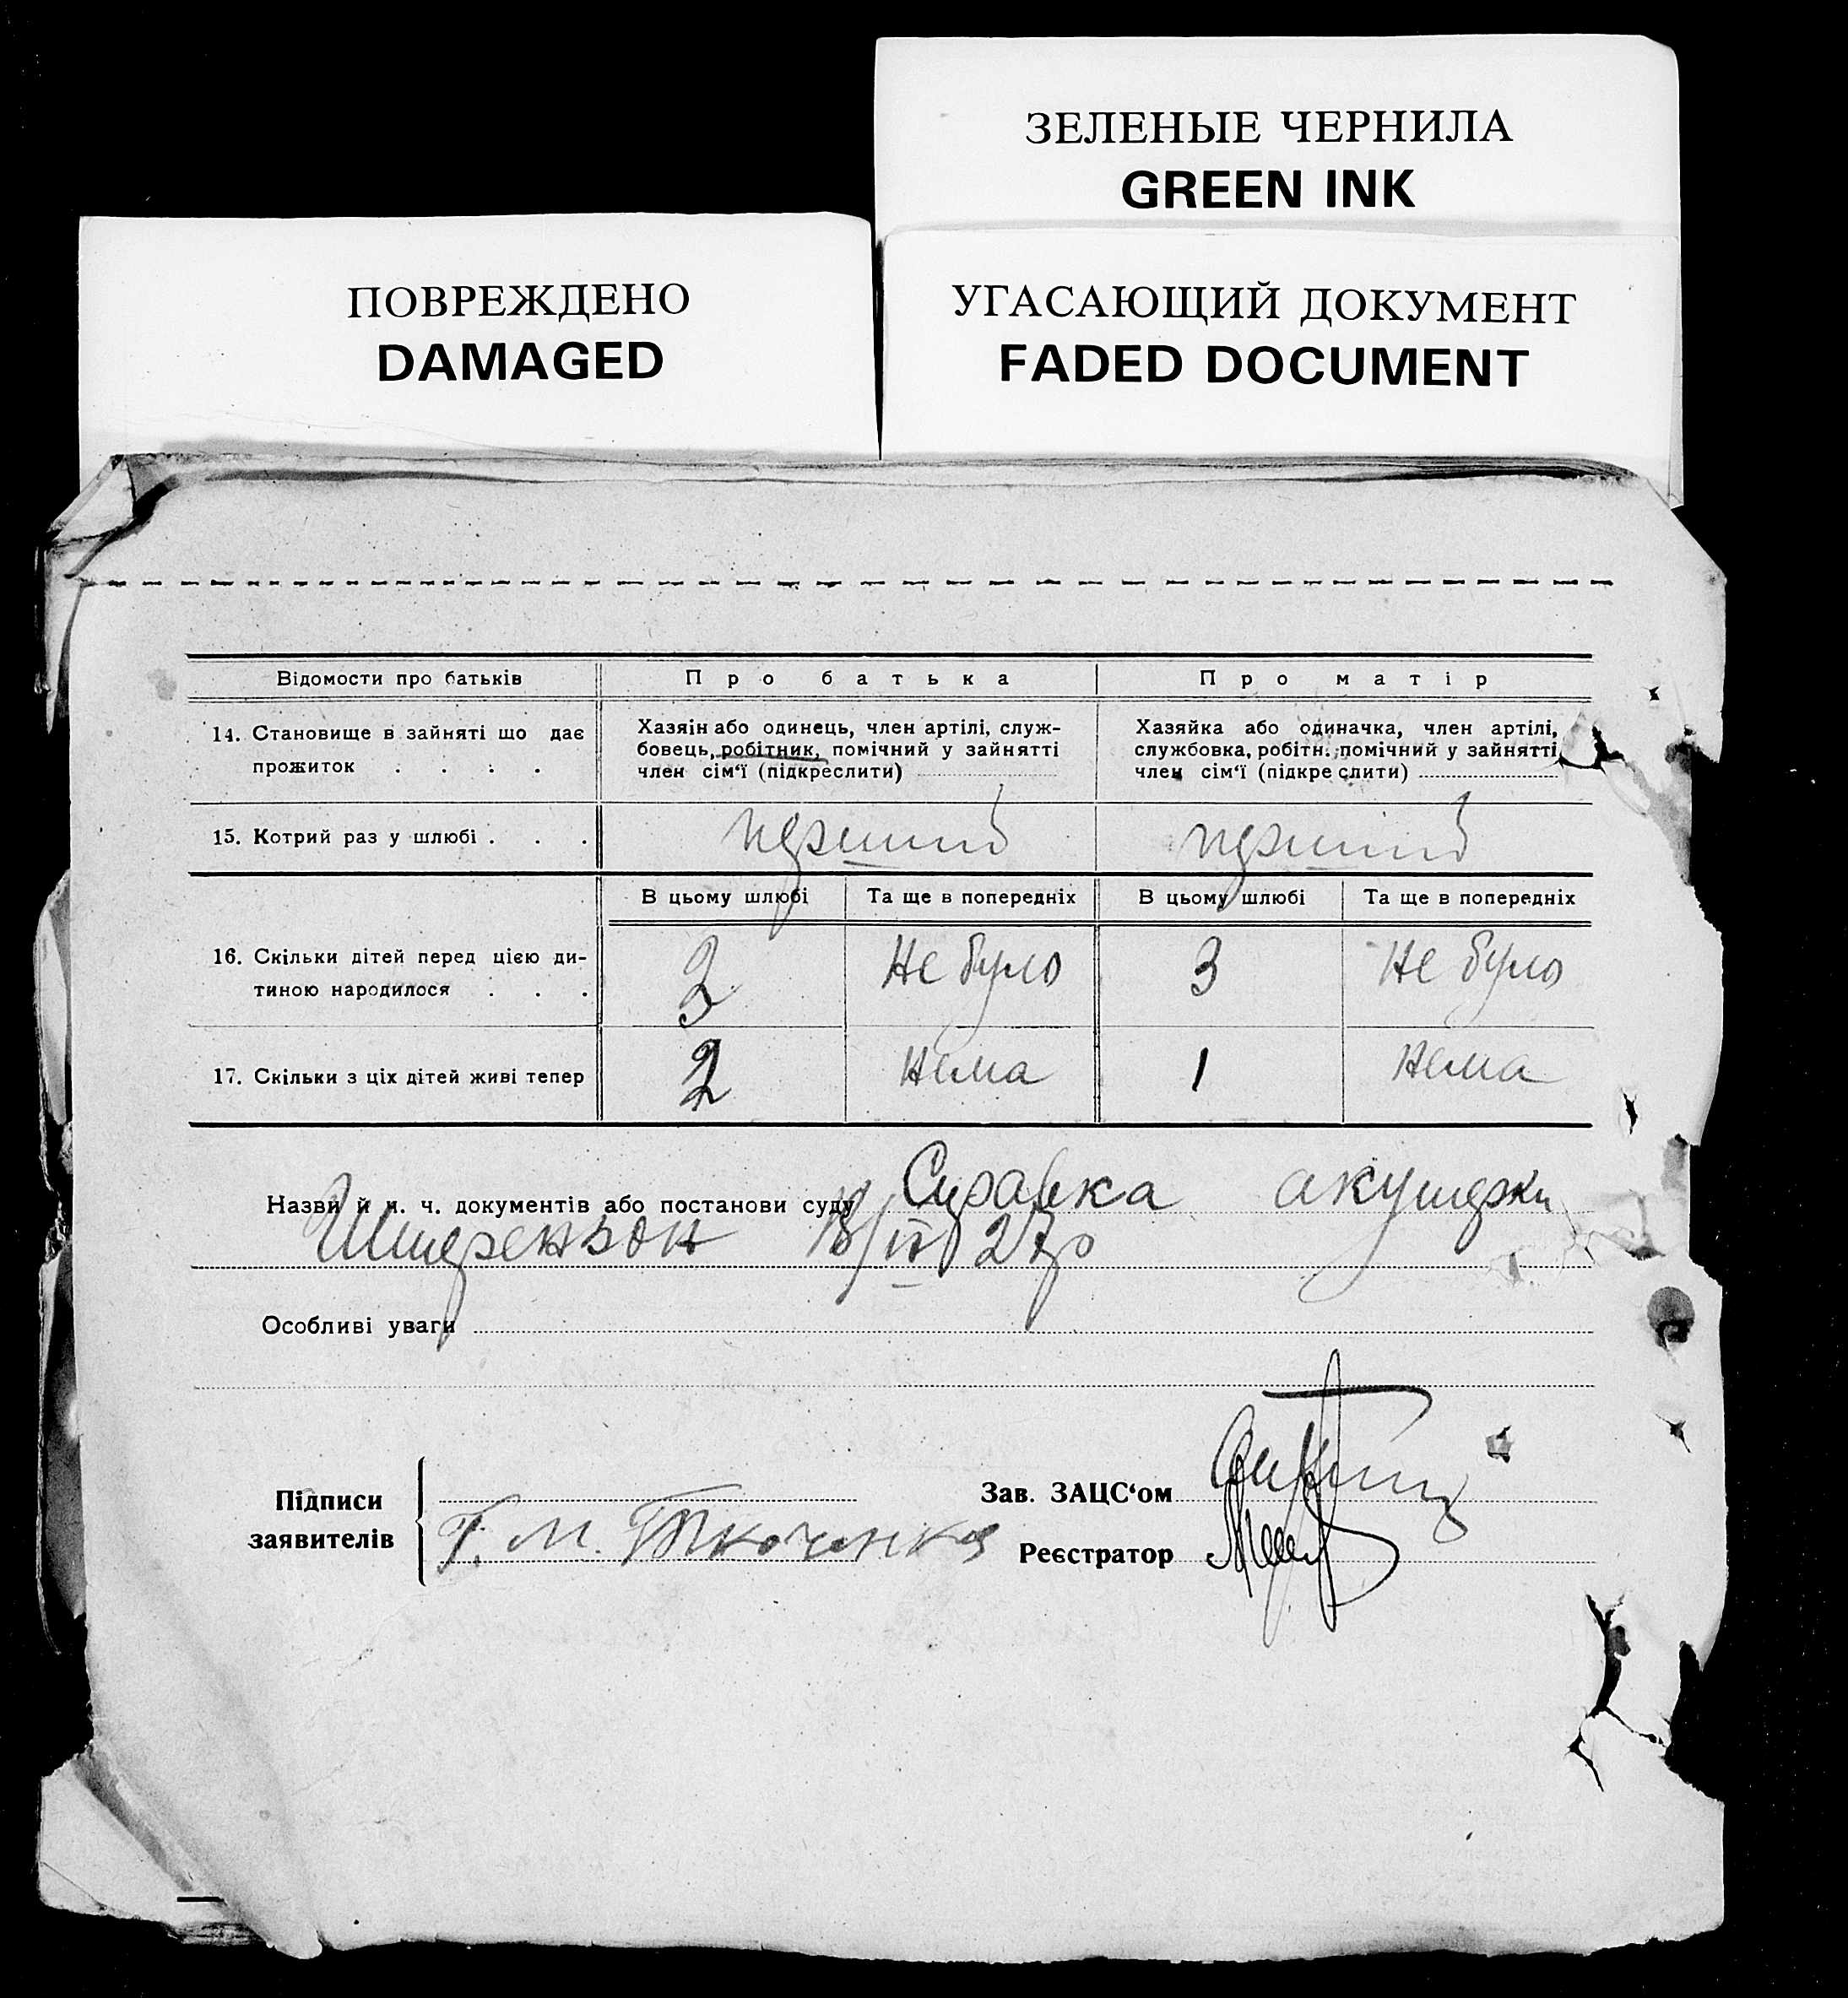 ЗЕЛЕНЫЕ ЧЕРНИЛА
GREEN INK
ПОВРЕЖДЕНО
DAMAGED
УГАСАЮЩИЙ ДОКУМЕНТ
FADED DOCUMENT
Відомости про батьків Про батька Про матір
14. Становище в зайняті що дає
прожиток . . . .
Хазяін або одинець, член артілі, служ-
бовець, робітник, помічний у зайнятті
член сім‘ї (підкреслити)
Хазяйка або одиначка, член артілі,
службовка, робітн., помічний у зайнятті
член сім‘ї (підкреслити)
15. Котрий раз у шлюбі . . . перший перший
В цьому шлюбі Та ще в попередніх В цьому шлюбі Та ще в попередніх
16. Скільки дітей перед цією ди-
тиною народилося . . . Не було 3 Не було
17. Скільки з ціх дітей живі тепер Нема 1 Нема
Назви й н. ч. документів або постанови суду Справка акушерки
27р
Особливі уваги
Підписи
заявителів
Г. М. Ткоченко
Зав. ЗАЦС‘ом
Реєстратор